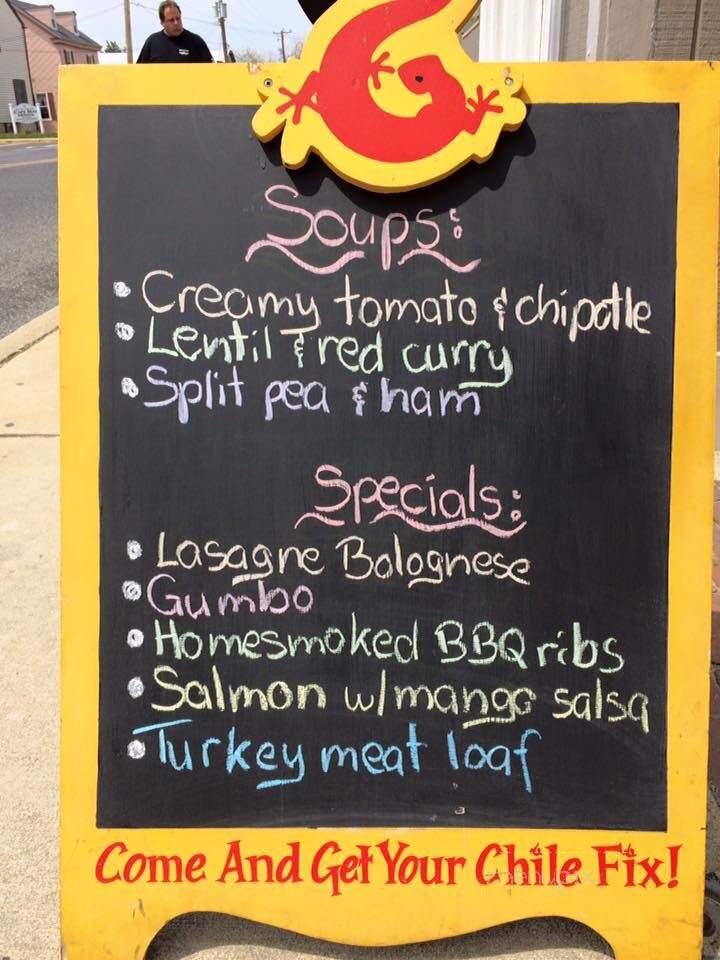 Soups:
• Creamy tomato & chipotle
• Lentil & red curry
• Split pea & ham
Specials:
• Lasagne Bolognese
• Gumbo
• Homesmoked BBQ ribs
• Salmon w/mango salsa
• Turkey meat loaf
Come And Get Your Chile Fix!